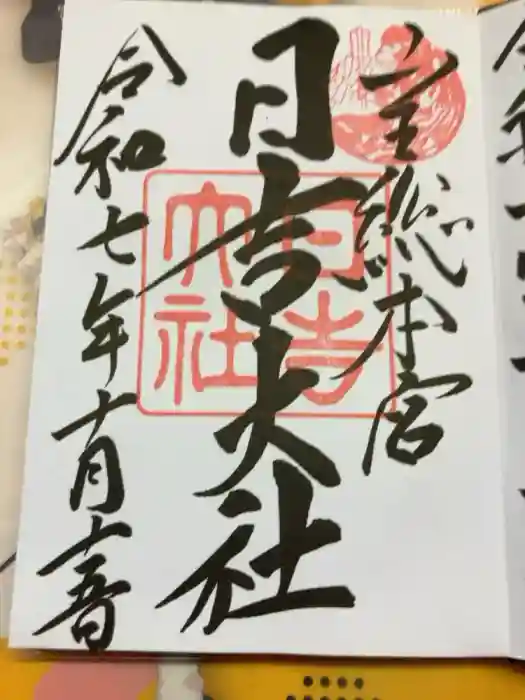 全総本宮
日吉大社
日吉
大社
令和七年十月十五日